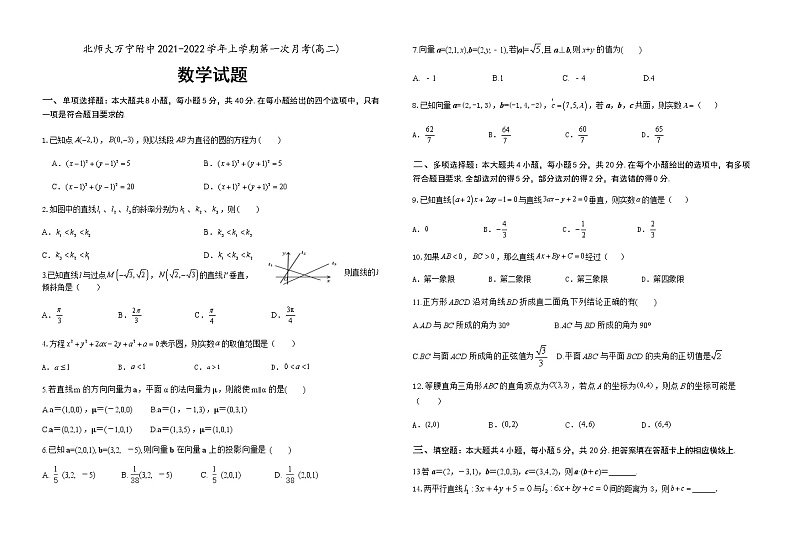 北师大万宁附中2021-2022学年上学期第一次月考(高二)
数学试题
一、单项选择题：本大题共8小题，每小题5分，共40分.在每小题给出的四个选项中，只有
一项是符合题目要求的
1.已知点A(−2,1)，B(0,−3)，则以线段AB为直径的圆的方程为( )
A．(x−1)²+(y−1)²=5 B．(x+1)²+(y+1)²=5
C．(x−1)²+(y−1)²=20 D．(x+1)²+(y+1)²=20
2.如图中的直线l₁、l₂、l₃的斜率分别为k₁、k₂、k₃，则( )
A．k₁<k₂<k₃ B．k₃<k₁<k₂
C．k₃<k₂<k₁ D．k₁<k₃<k₂
3.已知直线l与过点M(−√3,√2)，N(√2,−√3)的直线l'垂直，则直线的l
倾斜角是( )
A．π/3 B．2π/3 C．π/4 D．3π/4
4.方程x²+y²+2ax−2y+a²+a=0表示圆，则实数a的取值范围是( )
A．a≤1 B．a<1 C．a>1 D．0<a<1
5.若直线m的方向向量为a，平面α的法向量为μ，则能使m∥α的是( )
A.a＝(1,0,0)，μ＝(－2,0,0) B.a＝(1，－1,3)，μ＝(0,3,1)
C.a＝(0,2,1)，μ＝(－1,0,1) D.a＝(1,3,5)，μ＝(1,0,1)
6.已知a=(2,0,1), b=(3,2, －5),则向量b在向量a上的投影向量是 ( )
A. 1/5 (3,2, －5) B. 1/38(3,2, －5) C. 1/5 (2,0,1) D. 1/38 (2,0,1)
7.向量a=(2,1,x),b=(2,y,－1),若|a|=√5,且a⊥b,则x+y的值为( )
A. －1 B.1 C. －4 D.4
8.已知向量a=(2,-1,3)，b=(-1,4,-2)，c=(7,5,λ)，若a，b，c共面，则实数λ=( )
A．62/7 B．64/7 C．60/7 D．65/7
二、多项选择题：本大题共4小题，每小题5分，共20分.在每个小题给出的选项中，有多项
符合题目要求.全部选对的得5分，部分选对的得2分，有选错的得0分.
9.已知直线(a+2)x+2ay−1=0与直线3ax−y+2=0垂直，则实数a的值是( )
A．0 B．−4/3 C．−1/2 D．2/3
10.如果AB<0，BC>0，那么直线Ax+By+C=0经过( )
A．第一象限 B．第二象限 C．第三象限 D．第四象限
11.正方形ABCD沿对角线BD折成直二面角,下列结论正确的有( )
A.AD与BC所成的角为30° B.AC与BD所成的角为90°
C.BC与面ACD所成角的正弦值为√3/3 D.平面ABC与平面BCD的夹角的正切值是√2
12.等腰直角三角形ABC的直角顶点为C(3,3)，若点A的坐标为(0,4)，则点B的坐标可能是
( )
A．(2,0) B．(0,2) C．(4,6) D．(6,4)
三、填空题：本大题共4小题，每小题5分，共20分.把答案填在答题卡上的相应横线上.
13.若a＝(2，－3,1)，b＝(2,0,3)，c＝(3,4,2)，则a·(b＋c)＝______.
14.两平行直线l₁:3x+4y+5=0与l₂:6x+by+c=0间的距离为3，则b+c=______.